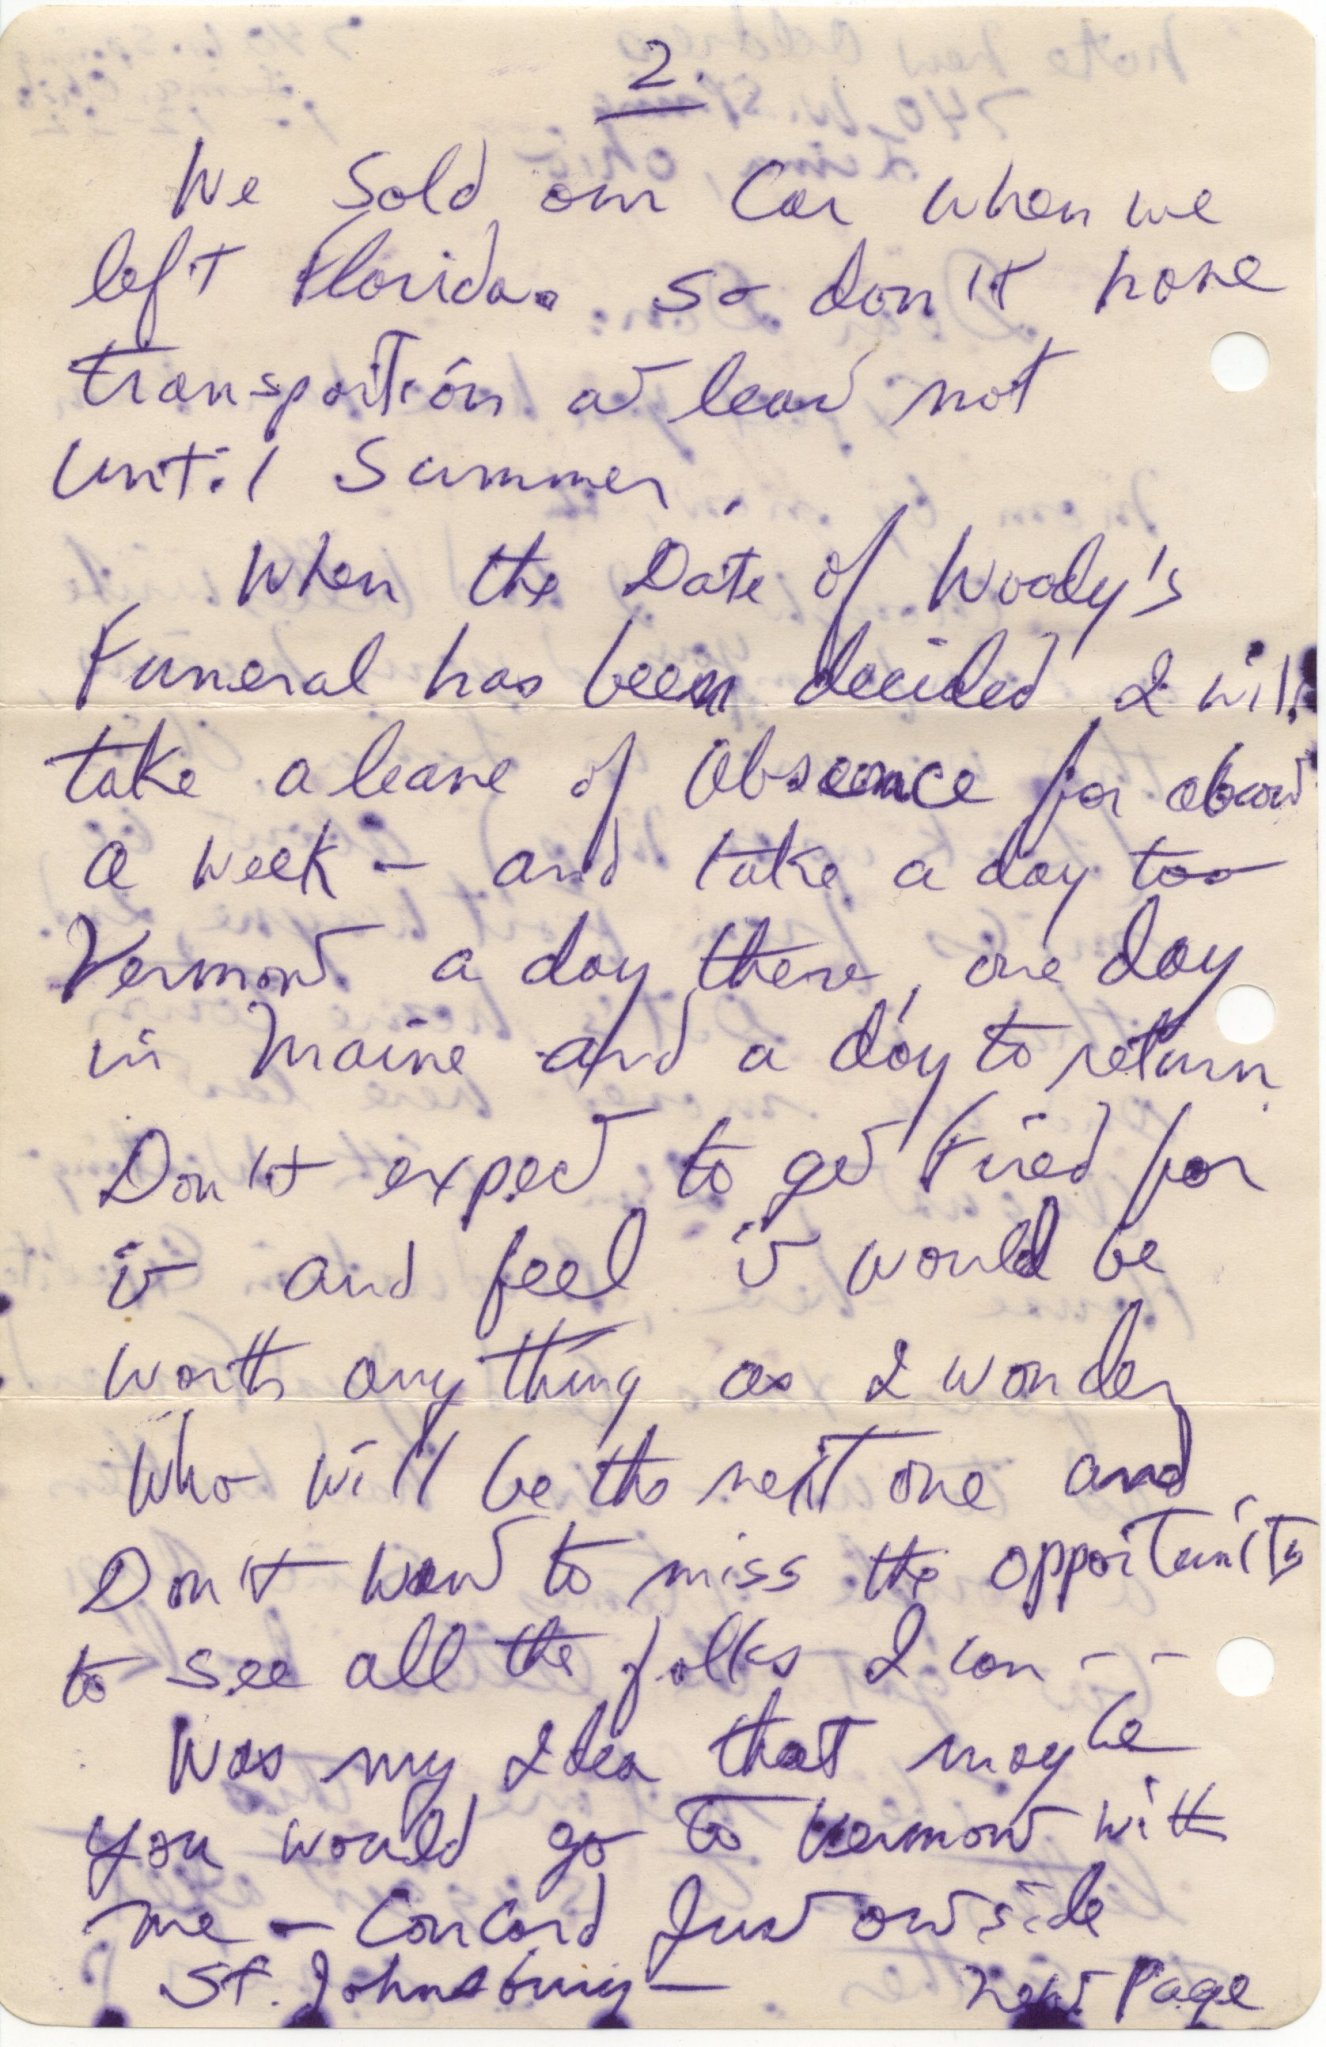 2.
We Sold our Car when we
left Florida. so don't have
transportion at least not
until Summer.
When the Date of Woody's
Funeral has been decided I will
take a leave of absence for about
a week - and take a day too
Vermont a day there, one day
in Maine and a day to return.
Don't expect to get Fired for
it and feel it would be
worth anything as I wonder
Who will be the next one and
Don't want to miss the opportunity
to see all the folks I can - -
Was my Idea that maybe
you would go to Vermont with
me - Concord Just outside
St. Johnsbury -
next Page